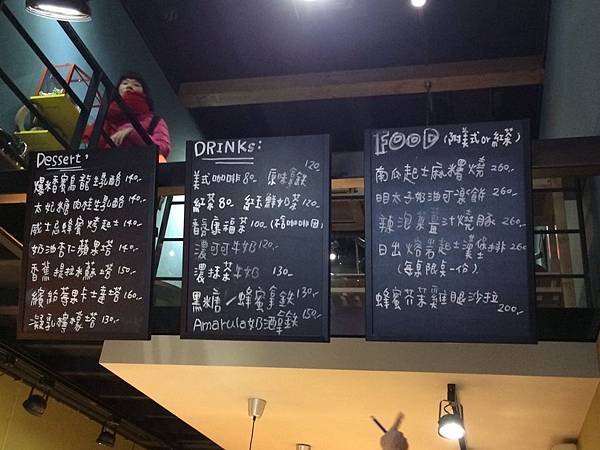 Dessert,
爆檸蜜烏龍生乳酪 140.-
太妃糖肉桂生乳酪 140.-
威士忌蜂蜜烤起士 140.-
奶油杏仁蘋果塔 140.-
香蕉提拉米蘇塔 150.-
繽紛莓果卡士達塔 160.-
凝乳檸檬塔 130.-
DRINKs:
美式咖啡 80. 原味拿鐵 120
紅茶 80. 紅玉鮮奶茶 120.
香草康福茶 100.(不含咖啡因)
濃可可牛奶 120.-
濃抹茶牛奶 130.-
黑糖/蜂蜜拿鐵 130.-
Amarula奶酒拿鐵 150.-
FOOD (附美式or紅茶)
南瓜起士麻糬燒 260.-
明太子奶油可麗餅 260.-
辣泡菜薑汁燒豚 260.-
日出 熔岩起士漢堡排 260.-
(每日限量一份)
蜂蜜芥茉雞腿沙拉 200.-